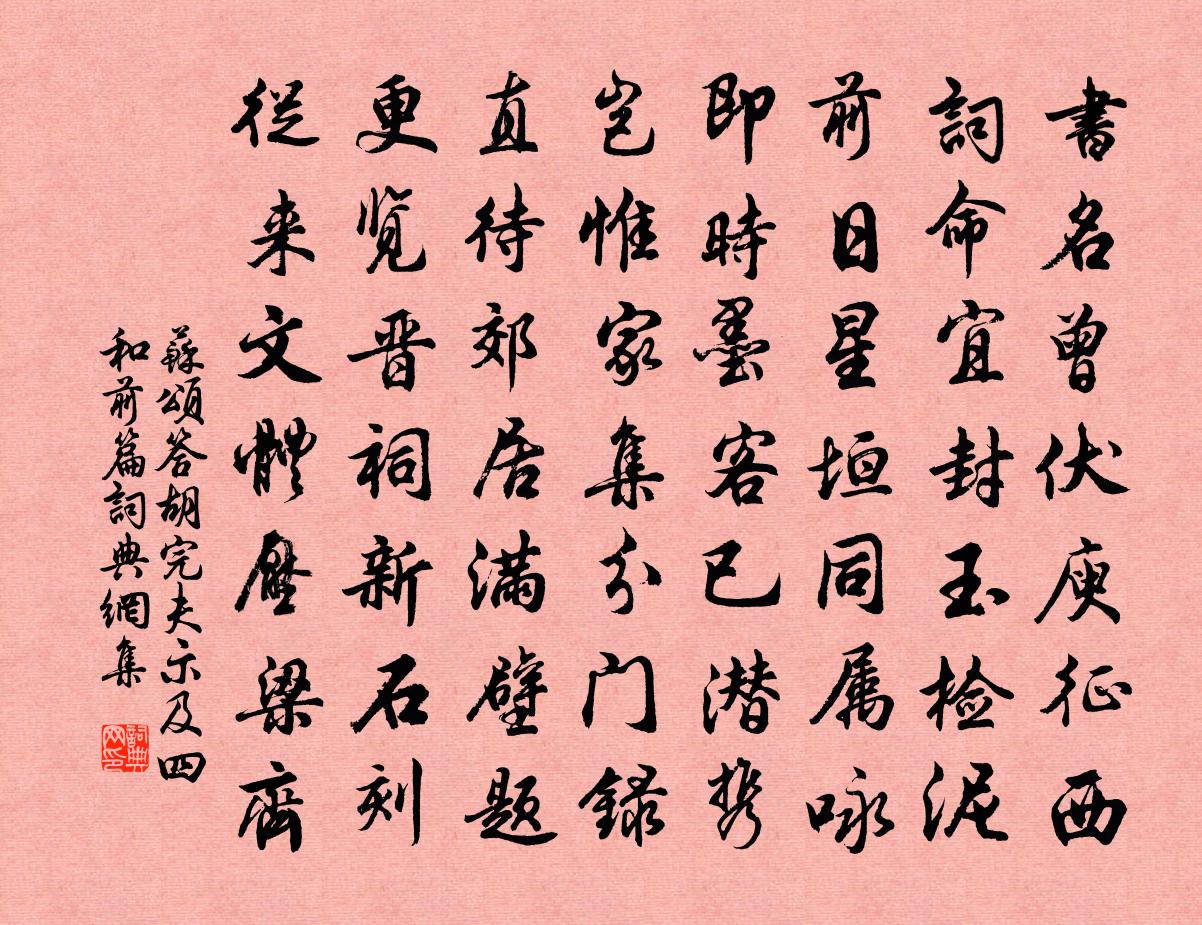 書名曾伏庾征西
詞命宜封玉檢泥
前日星垣同属咏
即時墨客已潜携
豈惟家集分门錄
直待郊居满壁题
更览晋祠新石刻
從来文體壓梁齊
蘇頌答胡完夫示及四
和前篇詞典網集
詞典網印